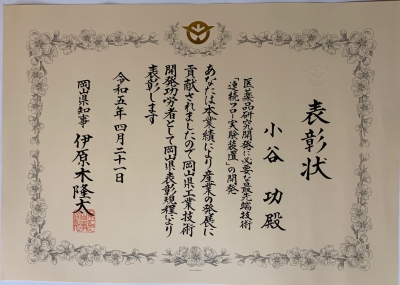 表彰状
小谷 功殿
医薬品研究開発に必要な最先端技術
「連続フロー実験装置」の開発
あなたは本業績により産業の発展に
貢献されましたので岡山県工業技術
開発功労者として岡山県表彰規程により
表彰します
令和五年四月二十一日
岡山県知事 伊原木隆太